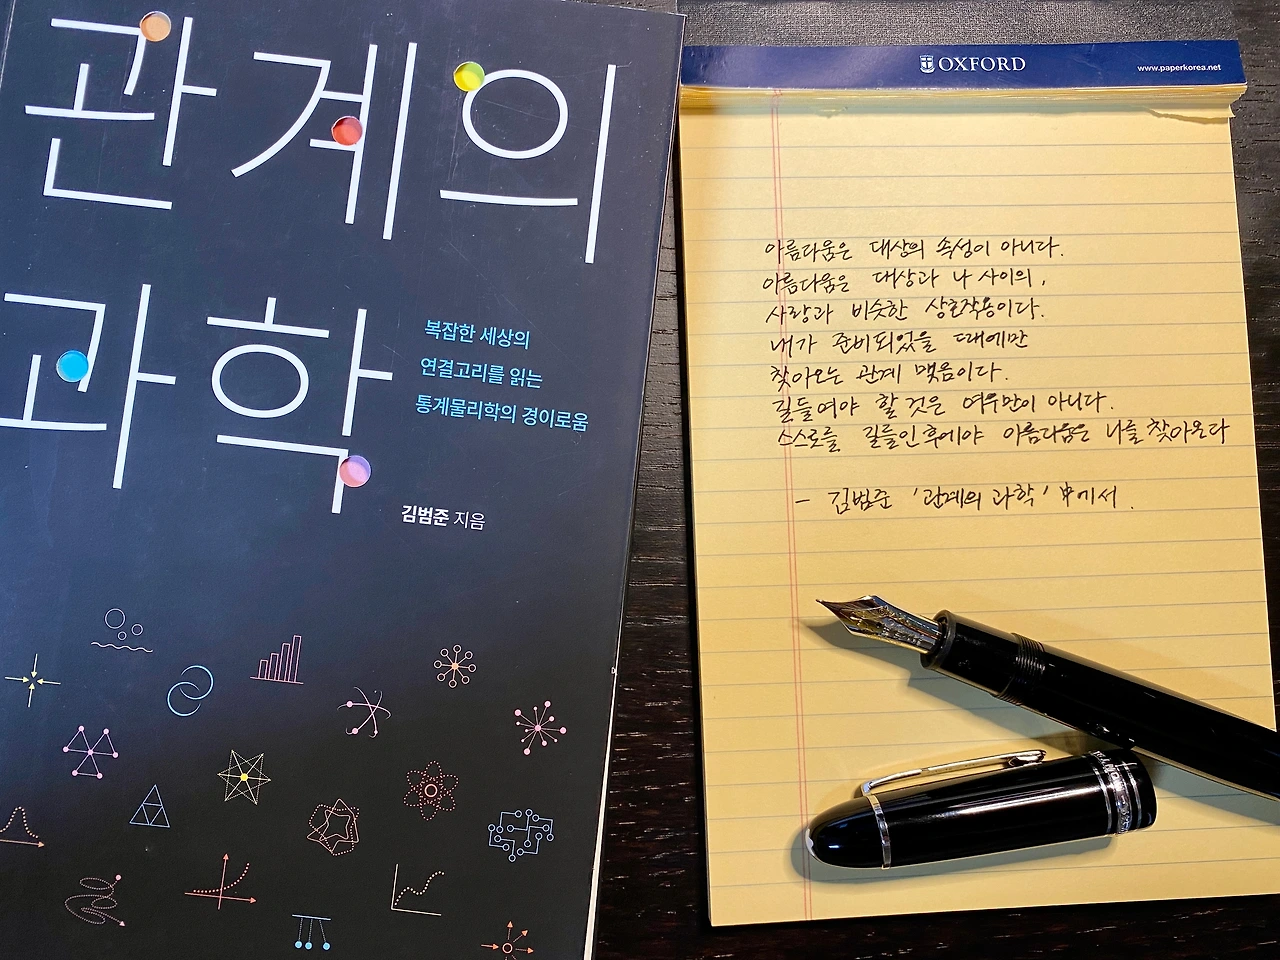 관계의
과학
복잡한 세상의
연결고리를 읽는
통계물리학의 경이로움
김범준 지음
OXFORD
www.paperkorea.net
아름다움은 대상의 속성이 아니다.
아름다움은 대상과 나 사이의,
사랑과 비슷한 상호작용이다.
내가 준비되었을 때에만
찾아오는 관계 맺음이다.
길들여야 할 것은 여우만이 아니다.
스스로를 길들인 후에야 아름다움은 나를 찾아온다
- 김범준 '관계의 과학' 中에서.